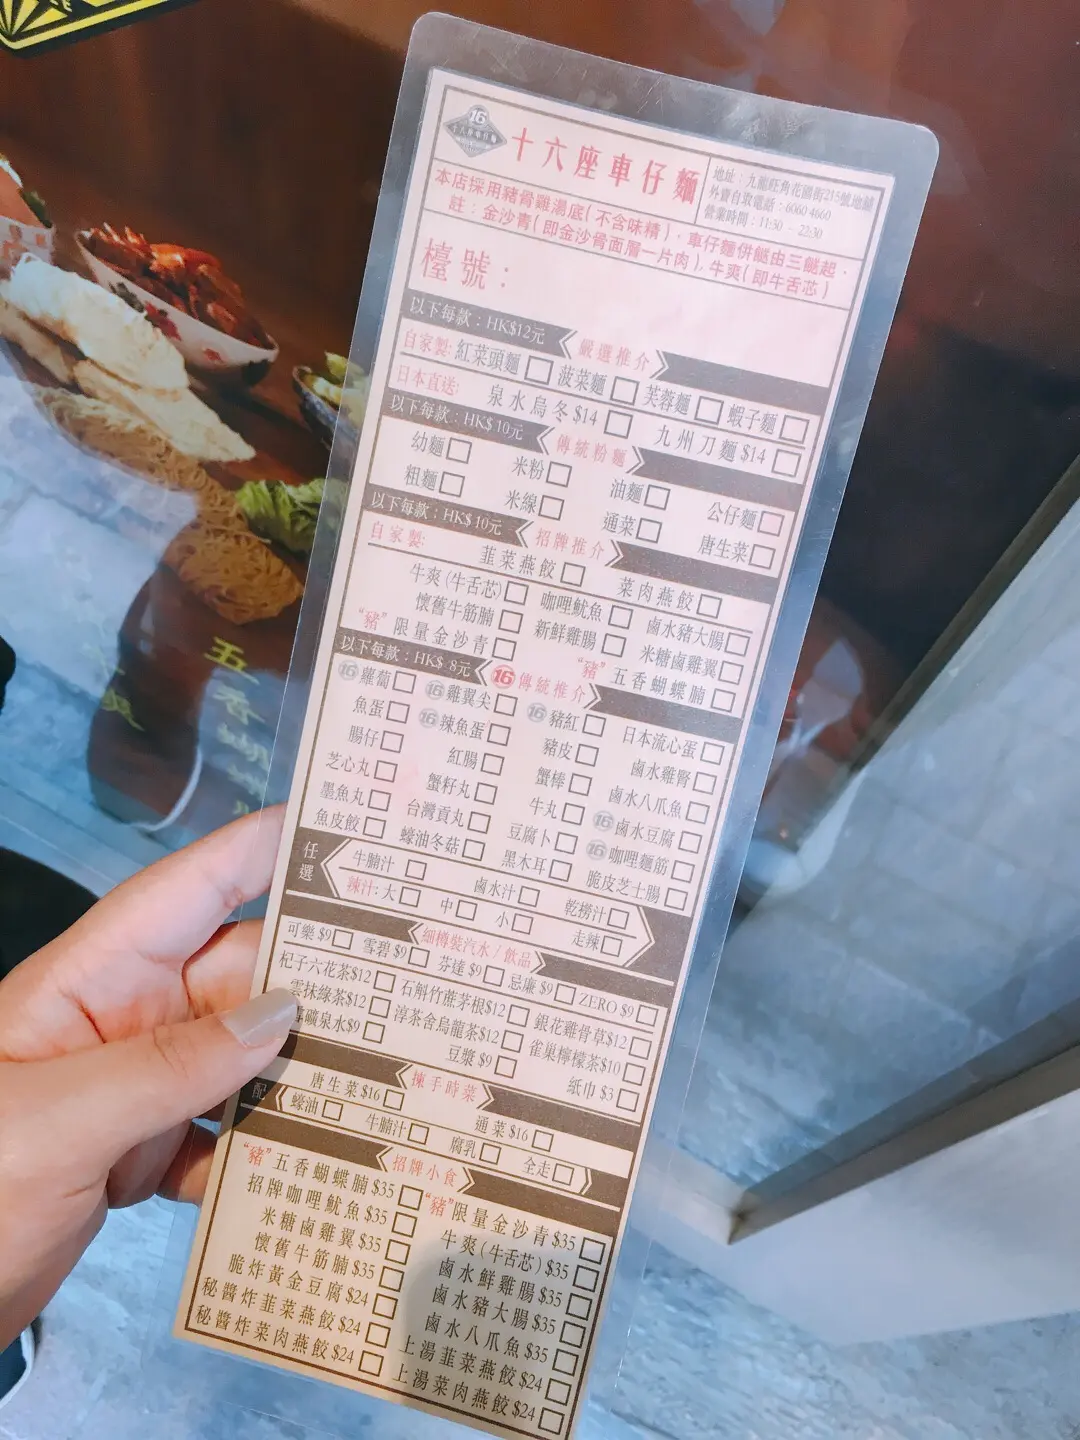 16
十六座車仔麵
十六座車仔麵
地址：九龍旺角花園街215號地鋪
外賣自取電話：6060 4660
營業時間：11:30 - 22:30
本店採用豬骨雞湯底(不含味精)，車仔麵併餸由三餸起，
註：金沙青(即金沙骨面層一片肉)，牛爽(即牛舌芯)
檯號：
以下每款：HK$12元 嚴選推介
自家製: 紅菜頭麵 菠菜麵 芙蓉麵 蝦子麵
日本直送: 泉水烏冬$14 九州刀麵$14
以下每款：HK$10元 傳統粉麵
幼麵 米粉 油麵 公仔麵
粗麵 米線 通菜 唐生菜
以下每款：HK$10元 招牌推介
自家製: 韮菜燕餃 菜肉燕餃
牛爽(牛舌芯) 咖哩魷魚 鹵水豬大腸
懷舊牛筋腩 新鮮雞腸 米糖鹵雞翼
"豬"限量金沙青 "豬"五香蝴蝶腩
以下每款：HK$ 8元 16 傳統推介
16 蘿蔔 16 雞翼尖 16 豬紅 日本流心蛋
魚蛋 16 辣魚蛋 豬皮 鹵水雞腎
腸仔 紅腸 蟹棒 鹵水八爪魚
芝心丸 蟹籽丸 牛丸 16 鹵水豆腐
墨魚丸 台灣貢丸 豆腐卜 16 咖哩麵筋
魚皮餃 蠔油冬菇 黑木耳 脆皮芝士腸
任選 牛腩汁 鹵水汁 乾撈汁
辣汁: 大 中 小 走辣
細樽裝汽水/飲品
可樂$9 雪碧$9 芬達$9 忌廉$9 ZERO $9
杞子六花茶$12 石斛竹蔗茅根$12 銀花雞骨草$12
雲抹綠茶$12 淳茶舍烏龍茶$12 雀巢檸檬茶$10
礦泉水$9 豆漿$9 紙巾$3
揀手時菜
唐生菜$16 通菜$16
配 蠔油 牛腩汁 腐乳 全走
招牌小食
"豬"五香蝴蝶腩$35 "豬"限量金沙青$35
招牌咖哩魷魚$35 牛爽(牛舌芯)$35
米糖鹵雞翼$35 鹵水鮮雞腸$35
懷舊牛筋腩$35 鹵水豬大腸$35
脆炸黃金豆腐$24 鹵水八爪魚$35
秘醬炸韮菜燕餃$24 上湯韮菜燕餃$24
秘醬炸菜肉燕餃$24 上湯菜肉燕餃$24
五香